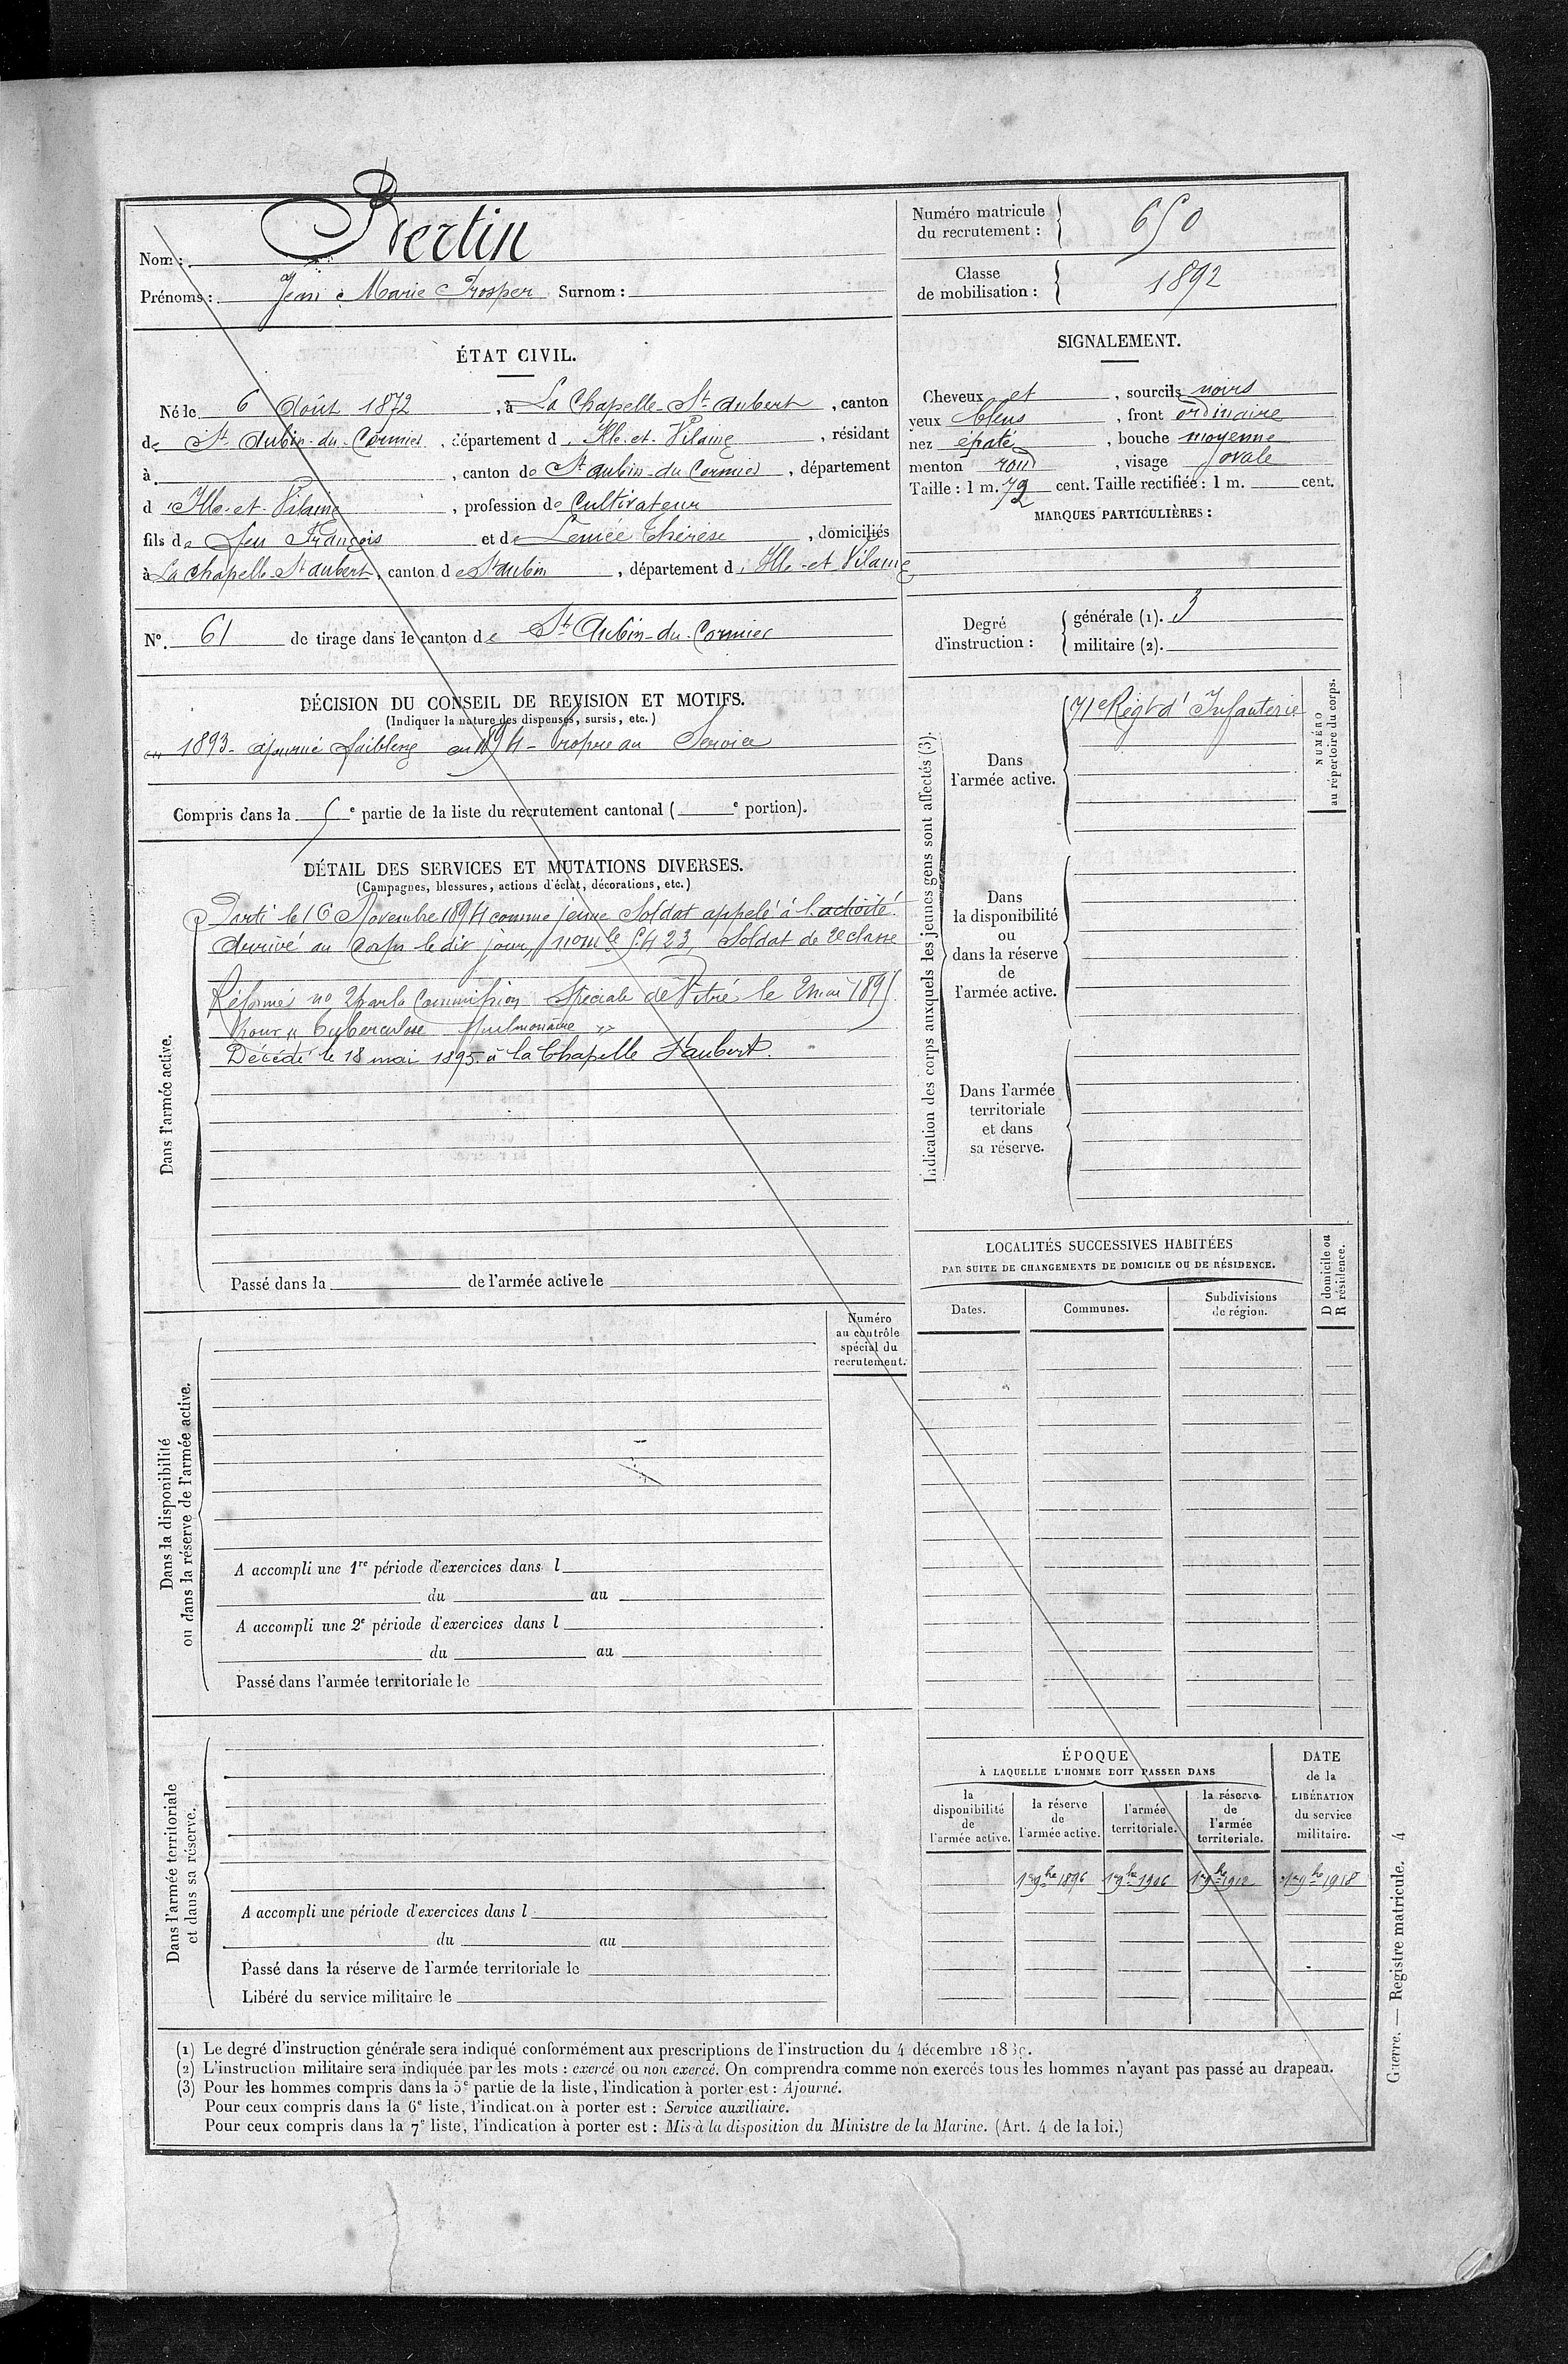 Nom : Bertin
Prénoms : Jean Marie Prosper Surnom :
Numéro matricule
du recrutement : 650
Classe
de mobilisation : 1892
ÉTAT CIVIL.
Né le 6 Août 1872, à La Chapelle-St-Aubert, canton
de St Aubin-du-Cormier, département d'Ille-et-Vilaine, résidant
à , canton de St Aubin-du-Cormier, département
d'Ille-et-Vilaine, profession de Cultivateur
fils de feu François et de Lemée Thérèse, domiciliés
à La Chapelle St Aubert, canton de St Aubin, département d'Ille-et-Vilaine
N°. 61 de tirage dans le canton de St Aubin-du-Cormier
SIGNALEMENT.
Cheveux et , sourcils noirs
yeux bleus , front ordinaire
nez épaté , bouche moyenne
menton rond , visage ovale
Taille : 1 m. 72 cent. Taille rectifiée : 1 m. cent.
MARQUES PARTICULIÈRES :
Degré
d'instruction :
générale (1). 3
militaire (2).
DÉCISION DU CONSEIL DE REVISION ET MOTIFS.
(Indiquer la nature des dispenses, sursis, etc.)
en 1893 - ajourné faiblesse en 1894 - Propre au Service
Compris dans la 5e partie de la liste du recrutement cantonal ( e portion).
DÉTAIL DES SERVICES ET MUTATIONS DIVERSES.
(Campagnes, blessures, actions d'éclat, décorations, etc.)
Dans l'armée active.
Parti le 16 Novembre 1894 comme jeune Soldat appelé à l'activité.
Arrivé au Corps le dit jour, n° mle 5423, Soldat de 2e classe
Réformé n° 2 par la Commission Spéciale de Vitré le 2 mai 1895
Pour "tuberculose Pulmonaire"
Décédé le 18 mai 1895 à la Chapelle St aubert.
Passé dans la de l'armée active le
Indication des corps auxquels les jeunes gens sont affectés (3).
NUMÉRO
au répertoire du corps.
Dans
l'armée active.
71e Régt d'Infanterie
Dans
la disponibilité
ou
dans la réserve
de
l'armée active.
Dans l'armée
territoriale
et dans
sa réserve.
LOCALITÉS SUCCESSIVES HABITÉES
PAR SUITE DE CHANGEMENTS DE DOMICILE OU DE RÉSIDENCE.
Dates.
Communes.
Subdivisions
de région.
D domicile ou
R résidence.
Numéro
au contrôle
spécial du
recrutement.
Dans la disponibilité
ou dans la réserve de l'armée active.
A accompli une 1re période d'exercices dans l
du au
A accompli une 2e période d'exercices dans l
du au
Passé dans l'armée territoriale le
Dans l'armée territoriale
et dans sa réserve.
A accompli une période d'exercices dans l
du au
Passé dans la réserve de l'armée territoriale le
Libéré du service militaire le
ÉPOQUE
À LAQUELLE L'HOMME DOIT PASSER DANS
la
disponibilité
de
l'armée active.
la réserve
de
l'armée active.
l'armée
territoriale.
la réserve
de
l'armée
territoriale.
DATE
de la
LIBÉRATION
du service
militaire.
1er 9bre 1896 1er 9bre 1906 1er 9bre 1912 1er 9bre 1918
(1) Le degré d'instruction générale sera indiqué conformément aux prescriptions de l'instruction du 4 décembre 1889.
(2) L'instruction militaire sera indiquée par les mots : exercé ou non exercé. On comprendra comme non exercés tous les hommes n'ayant pas passé au drapeau.
(3) Pour les hommes compris dans la 5e partie de la liste, l'indication à porter est : Ajourné.
Pour ceux compris dans la 6e liste, l'indication à porter est : Service auxiliaire.
Pour ceux compris dans la 7e liste, l'indication à porter est : Mis à la disposition du Ministre de la Marine. (Art. 4 de la loi.)
Guerre. — Registre matricule. 4